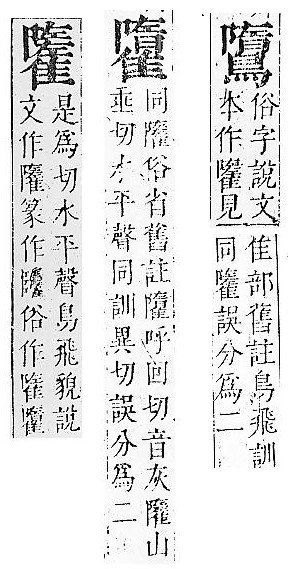 俗字說文
本作見
隹部舊註鳥飛訓
同誤分爲二
同俗省舊註呼回切音灰山
垂切水平聲同訓異切誤分爲二
是爲切水平聲鳥飛貌說
文作篆作俗作